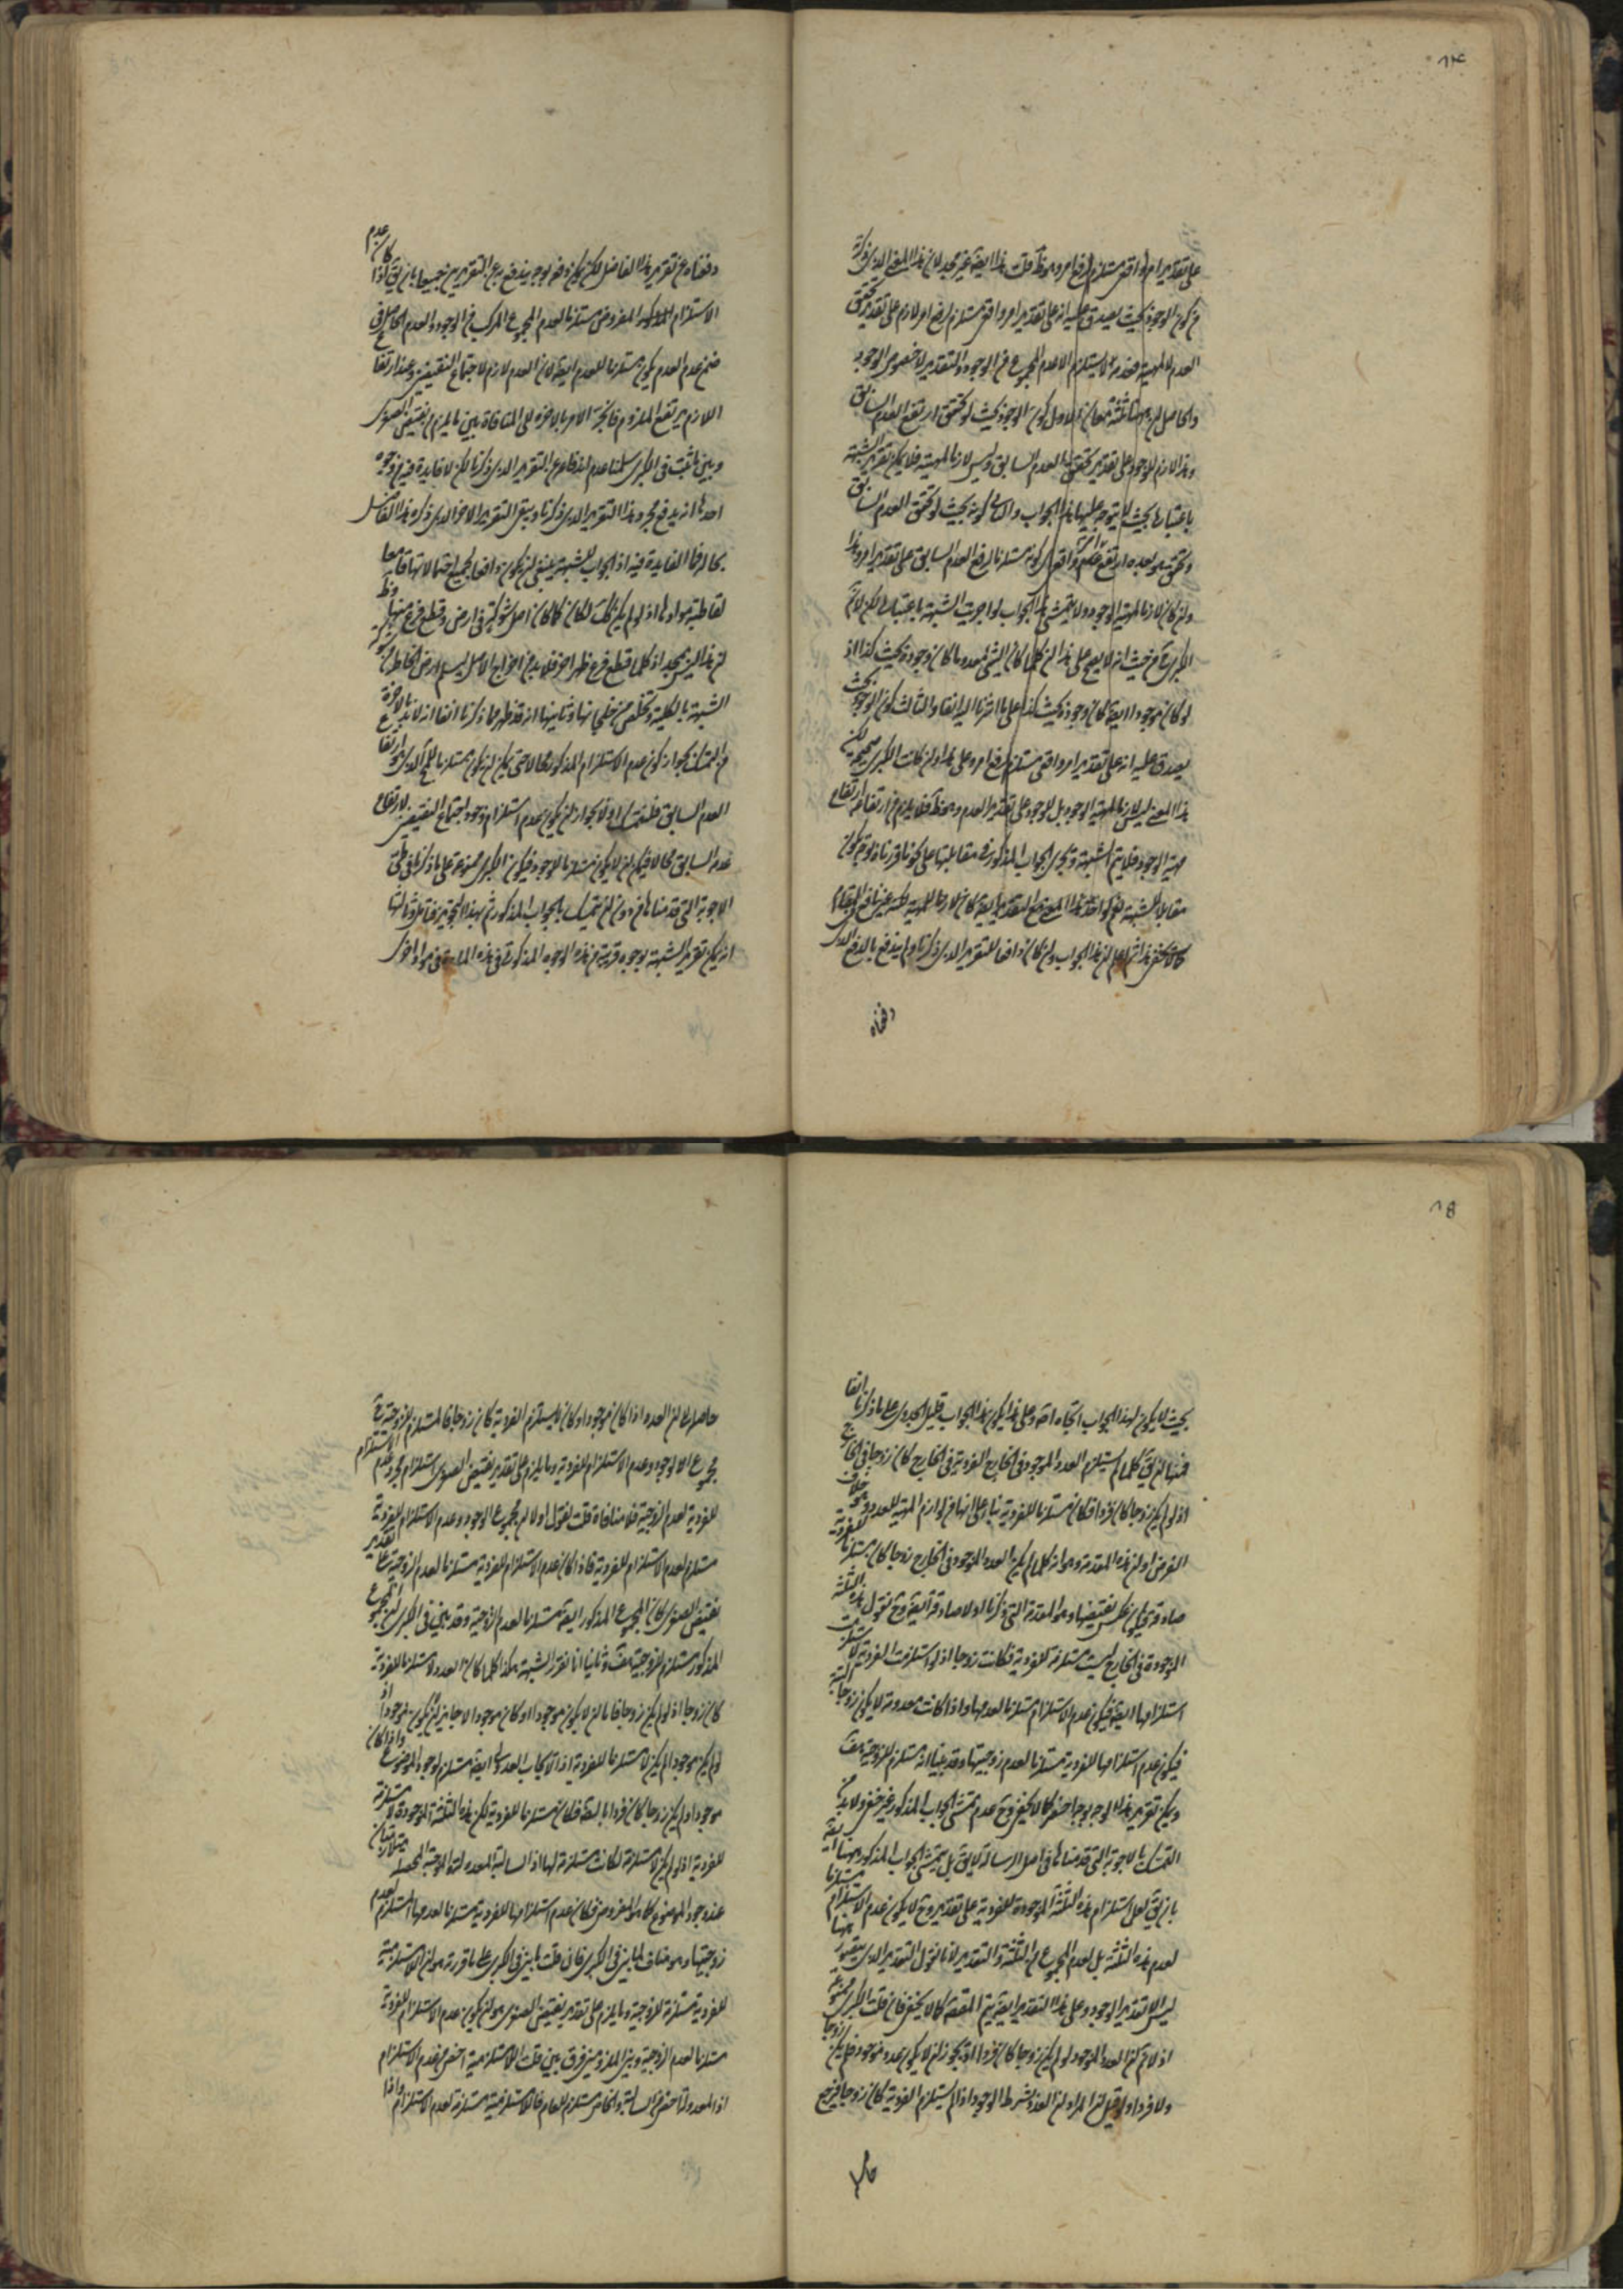 على تقدير امر واقعى مستلزم لرفع امر وهو ظ قلت هذا ايضا غير مجد لان هذا المعنى الذى ذكرته
من كون الوجود بحيث يصدق عليه انه على تقدير امر واقعى مستلزم لرفع امر لازم على تقدير تحقق
العدم لا لمهية فعدمه لا يستلزم الا عدم المجموع من الوجود والتقدير لا خصوص الوجود
والحاصل ان ههنا ثلثة معان الاول كون الوجود بحيث لو تحقق ارتفع العدم السابق
وهذا لازم للوجود على تقدير تحقق العدم السابق وليس لازما للمهية فلا يمكن تقرير الشبهة
باعتباره بحيث لا يتوجه عليها هذا الجواب والثانى كونه بحيث لو تحقق العدم السابق
وتحقق هو بعده ارتفع كونه مستلزما لرفع العدم السابق على تقدير امر وهذا
وان كان لازما لمهية الوجود ولا يتمشى هذا الجواب لو اجريت الشبهة باعتباره لكن لا تتم
الكبرى من حيث انه لا يصح على هذا ان كلما كان الشئ معدوما كان وجوده بحيث كذا اذ
لو كان موجودا ايضا كان وجوده بحيث كذا على ما اشرنا اليه انفا والثالث كون الوجود بحيث
يصدق عليه انه على تقدير امر واقعى مستلزم لرفع امر وعلى هذا وان كانت الكبرى صحيحة لكن
هذا المعنى ليس لازما لمهية الوجود بل للوجود على تقدير العدم وهو ظ فلا يلزم من ارتفاعه ارتفاع
مهية الوجود فلا يتم الشبهة ويجرى الجواب المذكور فى مقابلتها على نحو ما قررناه
مقابل الشبهة نعم لو اخذ هذا المعنى مع التقدير ايضا كان لازما للمهية لكنه غير نافع فى المقام
كما لا يخفى هذا ثم اعلم ان هذا الجواب وان كان دافعا للتقرير الذى ذكرنا ولم يندفع بالدفع الذى
دفعناه
دفعناه عن تقرير هذا الفاضل لكن يمكن دفعه بوجه يندفع به عن التقريرين جميعا بان يق اذا كان عدم
الاستلزام المذكور المفروض مستلزما لعدم المجموع المركب من الوجود والعدم الحاصل فى
ضمن عدم العدم يكون مستلزما للعدم ايضا لان العدم لازم لاجتماع النقيضين وعند ارتفاع
اللازم يرتفع الملزوم فانجر الامر بالاخرة الى المنافاة بين ما يلزم من نقيض الصغرى
وبين ما ثبت فى الكبرى سلمنا عدم اندفاعه عن التقرير الذى ذكرنا لكن لا فايدة فيه من وجوه
احدها انه يدفع مجرد هذا التقرير الذى ذكرنا ويبقى التقرير الاخر الذى ذكره هذا الفاضل
بحاله فما الفايدة فيه اذ الجواب للشبهة ينبغى ان يكون دافعا لجميع احتمالاتها قامعا
لقاطبة موادها اذ لو لم يكن كك لكان كما كان اصل شوكة فى ارض وقطع فرع منها وظ
ان هذا ليس بمجد اذ كلما قطع فرع ظهر اخر فلا بد من اخراج الاصل ليسلم ارض الخاطر من شوكة
الشبهة بالكلية وتخلص من خلجانها وثانيها انه قد ظهر مما ذكرنا انفا انه لا بد بالاخرة
من التمسك بجواز كون عدم الاستلزام المذكور محالا حتى يمكن ان يكون مستلزما للمحال الذى هو ارتفاع
العدم السابق فلنتمسك اولا بجواز ان يكون عدم استلزام وجود اجتماع النقيضين لارتفاع
عدمه السابق محالا فيمكن ان لا يكون مستلزما للوجود فيكون الكبرى ممنوعة على ما ذكرنا فى طى
الاجوبة التى قدمناها من دون ان نتمسك بالجواب المذكور ثم بهذا التجويز فتامل وثالثها
انه يمكن تقرير الشبهة بوجوه قريبة من هذه الوجوه المذكورة فى هذه المادة فى مواد اخرى
بحيث لا يكون لهذا الجواب اتجاه اصلا وعلى هذا يكون هذا الجواب قليل الجدوى على ما ذكرنا انفا
فمنها ان يق كلما لم يستلزم العدد الموجود فى الخارج الفردية فى الخارج كان زوجا فى الخارج
اذ لو لم يكن زوجا كان فردا فكان مستلزما للفردية بناء على انها من لوازم المهية للعدد وهو خلاف
الفرض اولا ان هذه المقدمة وهو انه كلما لم يكن العدد الموجود فى الخارج زوجا كان مستلزما للفردية
صادقة فيكون عكس نقيضها وهو المقدمة التى ذكرنا اولا صادقة ايضا وح نقول هذه الثلثة
الموجودة فى الخارج ليست مستلزمة للفردية فكانت زوجا اذ لو استلزمت الفردية لاستلزمت
استلزامها ايضا فيكون عدم الاستلزام مستلزما لعدمها واذا كانت معدومة لا يكون زوجا البتة
فيكون عدم استلزامها للفردية مستلزما لعدم زوجيتها وقد بينا انه مستلزم للزوجية هف
ويمكن تقرير هذا الوجه بوجه اخصر كما لا يخفى وح عدم تمشى الجواب المذكور غير خفى ولا بد من
التمسك بالاجوبة التى قدمناها فى اصل الرسالة لا يق بل يتمشى الجواب المذكور ههنا ايضا
بان يق لعل استلزام هذه الثلثة الموجودة للفردية على تقدير وح لا يكون عدم الاستلزام مستلزما
لعدم هذه الثلثة بل لعدم المجموع من الثلثة والتقدير لانا نقول التقدير الذى يتصور ههنا
ليس الا تقدير الوجود وعلى هذا التقدير ايضا يتم المقصود كما لا يخفى فان قلت الكبرى ممنوعة
اذ لا نم ان العدد الموجود لو لم يكن زوجا كان فردا لم لا يجوز ان لا يكون عدد موجود فلا يكن زوجا
ولا فردا ولو قيل ان المراد ان العدد بشرط الوجود اذا لم يستلزم الفردية كان زوجا فيرجع
حاصله
حاصله الى ان العدد اذا كان موجودا وكان لا يستلزم الفردية كان زوجا فالمستلزم للزوجية ح
مجموع الوجود وعدم الاستلزام للفردية وما يلزم على تقدير نقيض الصغرى استلزام مجرد عدم الاستلزام
للفردية لعدم الزوجية فلا منافاة قلت نقول اولا ان مجموع الوجود وعدم الاستلزام للفردية
مستلزم لعدم الاستلزام للفردية فاذا كان عدم الاستلزام للفردية مستلزما لعدم الزوجية على تقدير
نقيض الصغرى كان المجموع المذكور ايضا مستلزما لعدم الزوجية وقد بين فى الكبرى ان المجموع
المذكور مستلزم للزوجية هف وثانيا انا نقرر الشبهة هكذا كلما كان العدد لا مستلزما للفردية
كان زوجا اذ لو لم يكن زوجا فاما ان لا يكون موجودا او كان موجودا لا جايز ان لا يكون موجودا اذ
لو لم يكن موجودا لم يكن لا مستلزما للفردية اذ الايجاب العدولى ايضا مستلزم لوجود الموضوع واذا كان
موجودا ولم يكن زوجا كان فردا البتة فكان مستلزما للفردية لكن هذه الثلثة الموجودة لا مستلزمة
للفردية اذ لو لم يكن لا مستلزمة لكانت مستلزمة لها اذ السالبة المعدولة والموجبة المحصلة متلازمتان
عند وجود الموضوع كما هو المفروض فكان عدم استلزامها للفردية مستلزما لعدمها المستلزم لعدم
زوجيتها وهو مناف لما بين فى الكبرى فان قلت ما بين فى الكبرى على ما قررت هو ان اللامستلزمية
للفردية مستلزمة للزوجية وما يلزم على تقدير نقيض الصغرى هو ان يكون عدم الاستلزام للفردية
مستلزما لعدم الزوجية وبين الملزومين فرق بين قلت اللامستلزمية اخص من عدم الاستلزام
اذ المعدولة اخص من السالبة والخاص مستلزم للعام فاللامستلزمية مستلزمة لعدم الاستلزام واذا